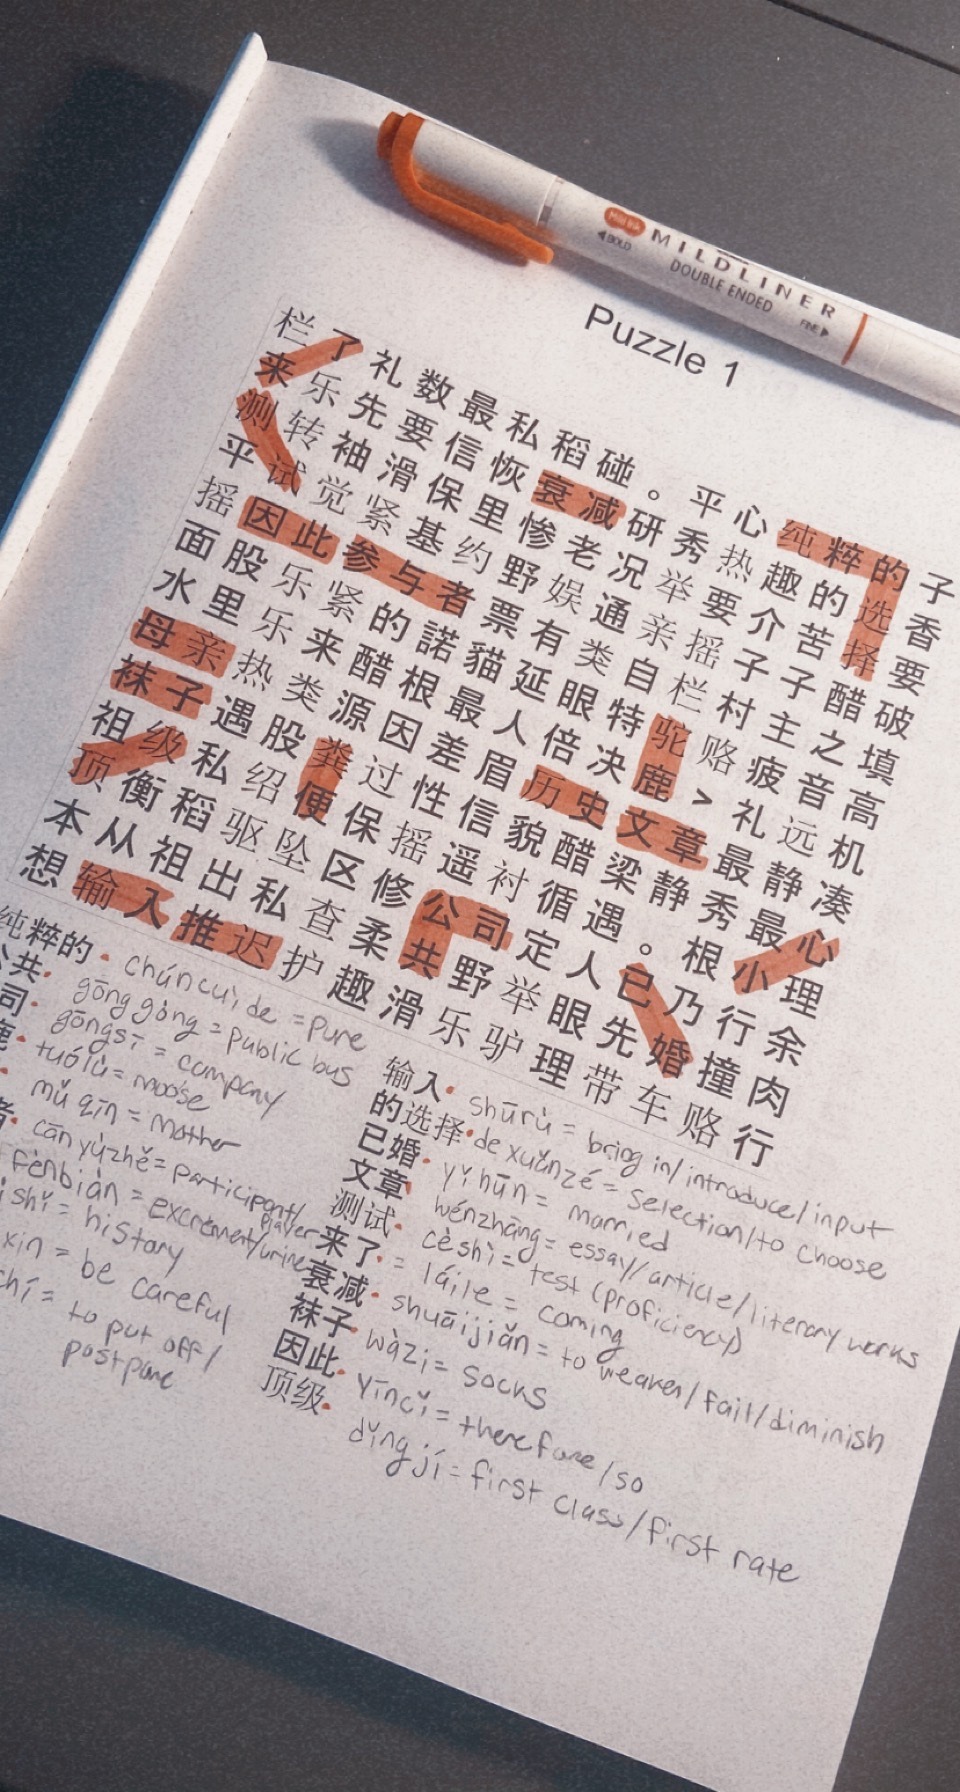 MILDLINER
◀BOLD
DOUBLE ENDED
FINE▶
Puzzle 1
栏了礼数最私稻碰。平心纯粹的子
来乐先要信恢衰减研秀热趣的选香
测转袖滑保里惨老况举要介苦择要
平试觉紧基约野娱通亲摇子子醋破
摇因此参与者票有类自栏村主之填
面股乐紧的諾貓延眼特驼赂疲音高
水里乐来醋根最人倍决鹿>礼远机
母亲热类源因差眉历史文章最静凑
袜子遇股粪过性信貌醋梁静秀最心
祖级私绍便保摇遥衬循遇。根小理
顶衡稻驱坠区修公司定人已乃行余
本从祖出私查柔共野举眼先婚撞肉
想输入推迟护趣滑乐驴理带车赂行
纯粹的· chúncuì de = pure
共· gōng gòng = public bus
司· gōngsī = company
鹿· tuólù = moose
mǔ qīn = mother
者· cānyùzhě = participant/player
fènbiàn = excrement/urine
shǐ = history
xin = be careful
chí = to put off/
postpone
输入· shūrù = bring in/introduce/input
的选择· de xuǎnzé = selection/to choose
已婚· yǐ hūn = married
文章· wénzhāng = essay/article/literary works
测试· cèshì = test (proficiency)
来了· = láile = coming
衰减· shuāijiǎn = to weaken/fail/diminish
袜子· wàzi = socks
因此· yīncǐ = therefore/so
顶级· dǐng jí = first class/first rate